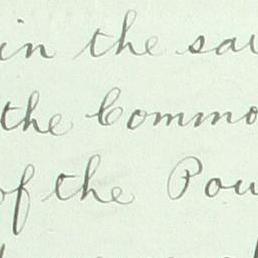 in the sai
the Commo
of the Pow